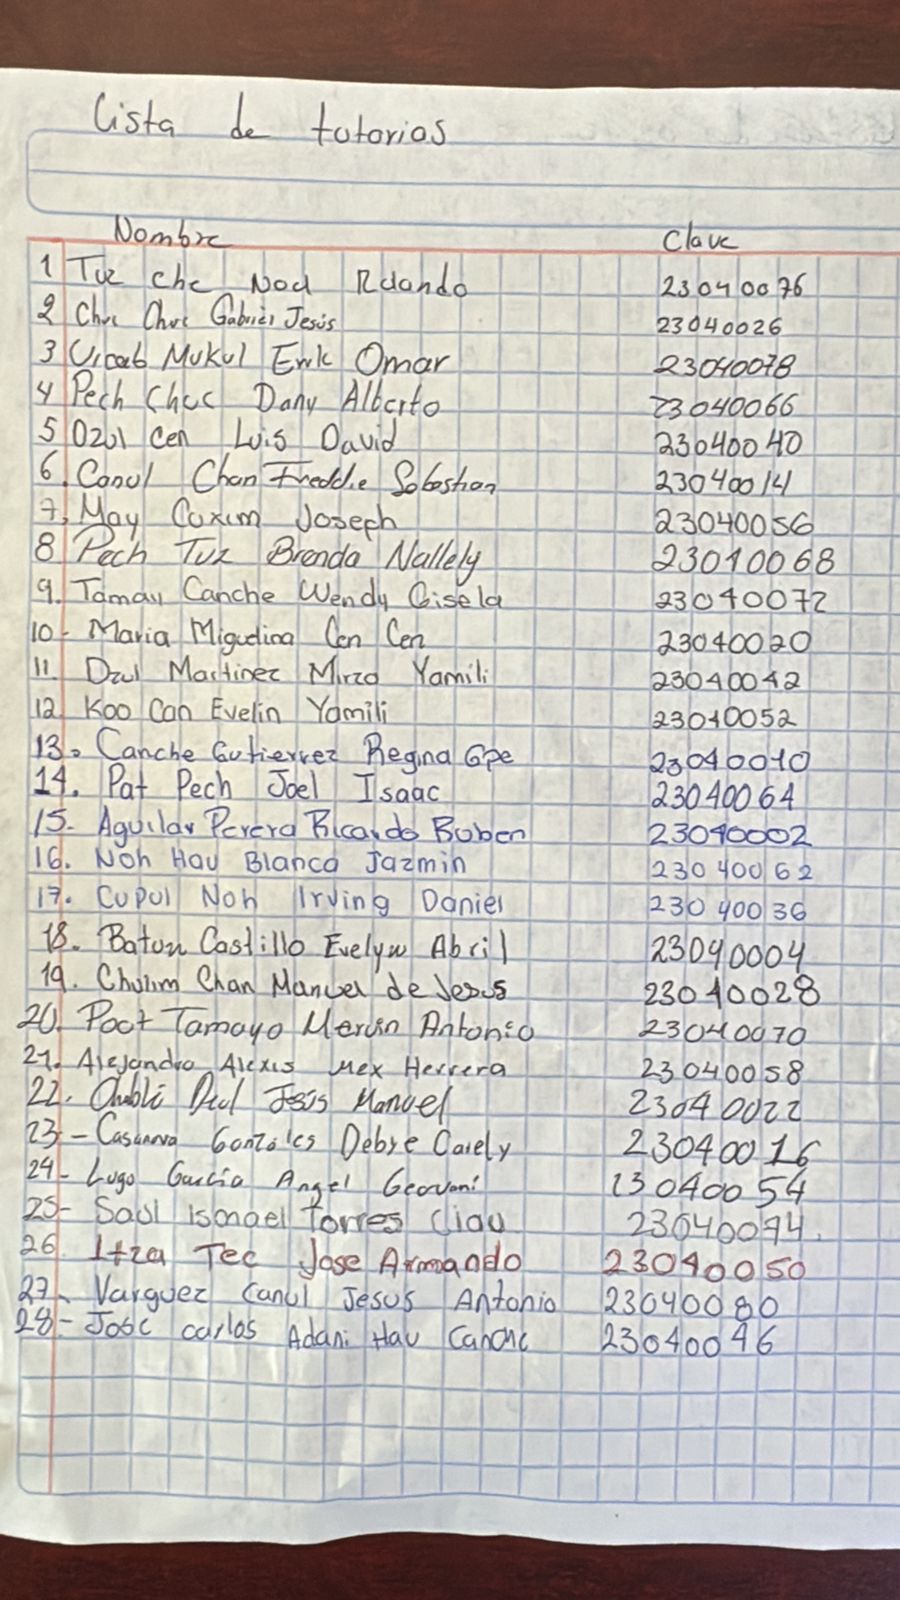 Lista de tutorias
Nombre Clave
1 Tuz Che Noel Rolando 23040076
2 Chuc Chuc Gabriel Jesús 23040026
3 Uicab Mukul Erik Omar 23040078
4 Pech Chuc Dany Alberto 23040066
5 Dzul Cen Luis David 23040040
6. Canul Chan Freddie Sebastian 23040014
7. May Coxim Joseph 23040056
8 Pech Tuz Brenda Nallely 23040068
9. Tamay Canche Wendy Gisela 23040072
10- Maria Miguelina Cen Cen 23040020
11. Dzul Martinez Mirza Yamili 23040042
12. Koo Can Evelin Yamili 23040052
13. Canche Gutierrez Regina Gpe 23040010
14. Pat Pech Joel Isaac 23040064
15. Aguilar Perera Ricardo Ruben 23040002
16. Noh Hau Blanca Jazmin 23040062
17. Cupul Noh Irving Daniel 23040036
18. Batun Castillo Evelyn Abril 23040004
19. Chulim Chan Manuel de Jesus 23040028
20. Poot Tamayo Mervin Antonio 23040070
21. Alejandro Alexis Mex Herrera 23040058
22. Chablé Dzul Jesús Manuel 23040022
23- Casanova Gonzales Debye Carely 23040016
24- Lugo Garcia Angel Geovani 23040054
25- Saul Ismael Torres Ciau 23040074.
26 Itza Tec Jose Armando 23040050
27. Varguez Canul Jesus Antonio 23040080
28- Jose carlos Adani Hau Canche 23040046